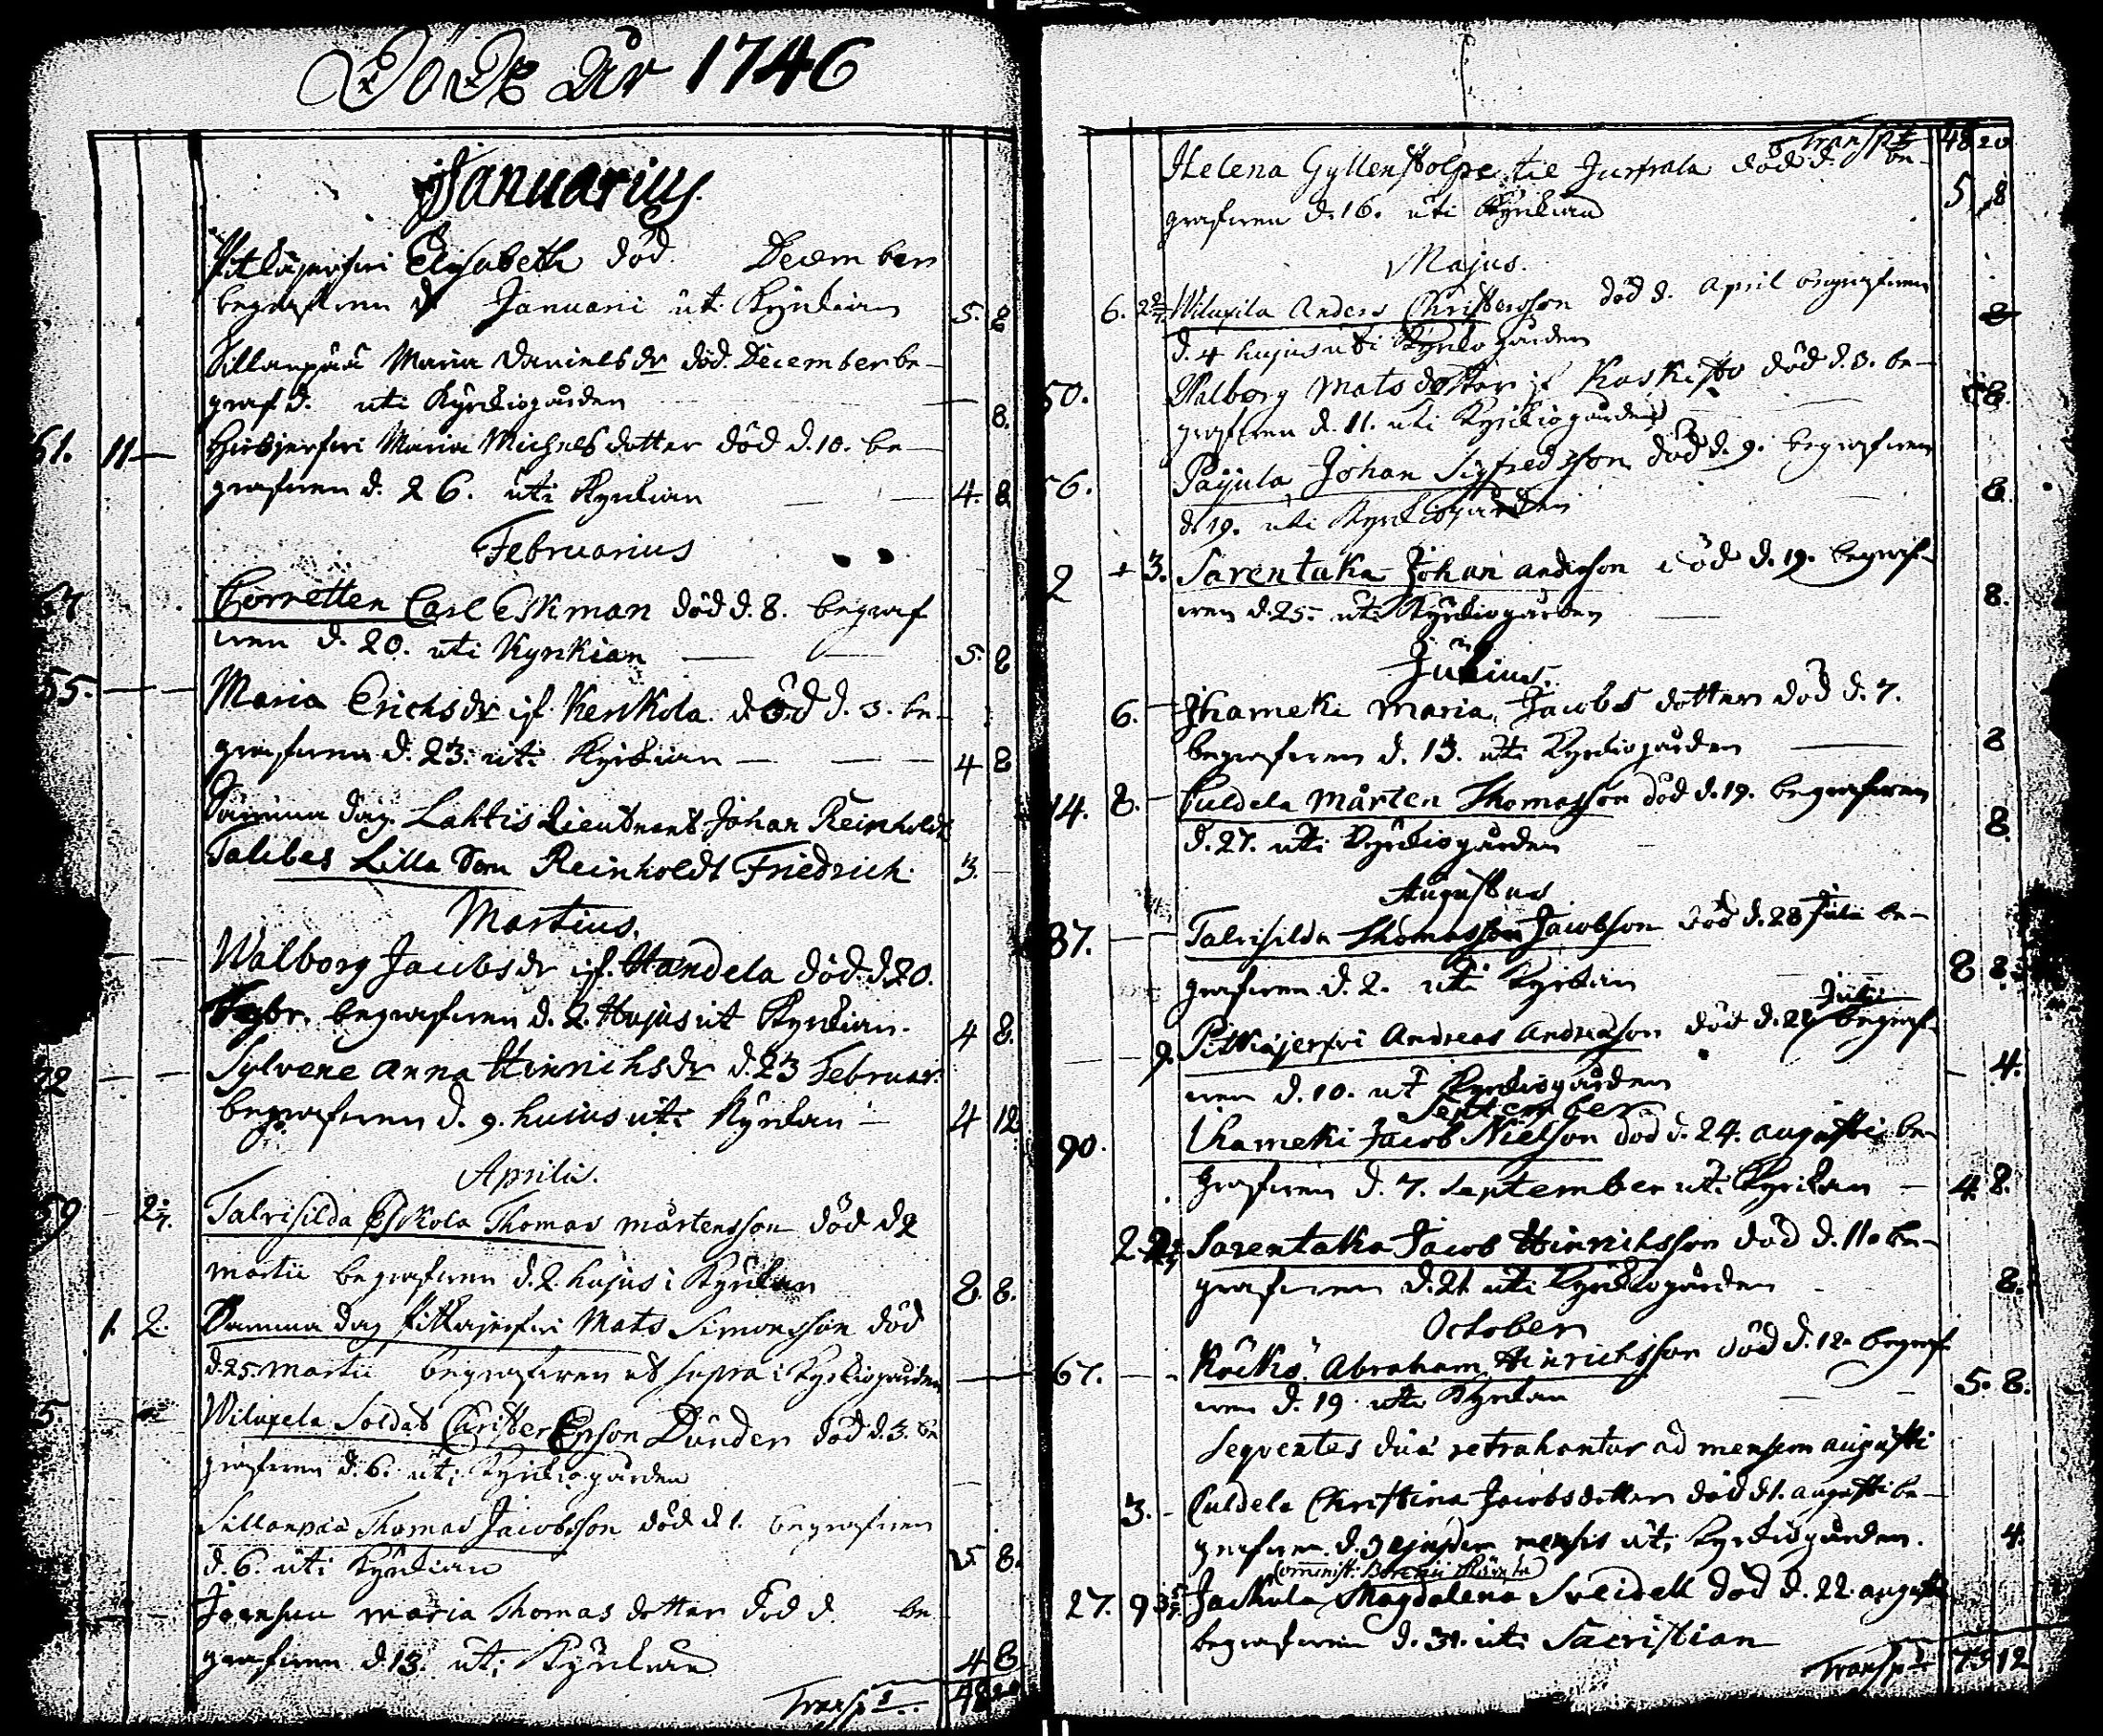 Döde År 1746
Januarius.
Pitkäjerfwi Elisabeth död December
begrafwen d. Januarii uti Kyrkian 5. 8
Sillanpää Maria Danielsdr död. December be-
graf d. uti Kyrkiogården 8.
61. 11 Maria Michelsdotter död d. 10. be-
grafwen d. 26. uti Kyrkian 4. 8
Februarius
Cornetten Carl Eskman död d. 8. begraf
wen d. 20. uti Kyrkian 5. 8
55. Maria Erichsdr if. Kerkola död d. 3. be-
grafwen d. 23. uti Kyrkian 4 8
Samma dag Lahtis Lieutnent Johan Reinholdt
Lilla Son Reinholdt Friedrich. 3.
Martius.
Walborg Jacobsdr if. Handela död d. 20.
Febr. begrafwen d. 2. Hujus ut Kyrkian. 4 8.
Sylvene Anna Hinrichsdr d. 23 Februar.
begrafwen d. 9. hujus uti Kyrkan 4 12
Aprilis.
59 2/7. Talvisilda Eskola Thomas Mårtensson död d 2
Martii begrafwen d. 2. hujus i Kyrkan 8. 8.
1. 2. Samma dag Pitkäjerfwi Mats Simonsson död
d. 25. Martii begrafwen ut supra i Kyrkiogården
5. Wiluxela Soldat Christer Ersson Dunder död d. 3. be
grafwen d. 6. uti Kyrkiogården
Sillanpää Thomas Jacobsson död d 1. begrafwen
d. 6. uti Kyrkian 5 8.
Joensuu Maria Thomasdotter död d. be-
grafwen d. 13. uti Kyrkian 4 8
Transpt. 48 20
Transpt 48 20
Helena Gyllenstolpe till Jursala död d. be-
grafwen d. 16. uti Kyrkian 5 8
Majus.
6. Wiluxila Anders Christersson död d. April begrafwen 8
d. 4 hujus uti Kyrkiogården
50. Walborg Matsdotter if Koskisto död d. 3. be-
grafwen d. 11. uti Kyrkiogården 8.
56. Payula Johan Sigfredsson död d. 9. begrafwen
d. 19. uti Kyrkiogården 8.
2 + 3. Sarentaka Johan Andersson död d. 19. begraf-
wen d. 25. uti Kyrkiogården 8.
Julius.
6. Ihameki Maria Jacobsdotter död d. 7.
begrafwen d. 13. uti Kyrkiogården 8
14. 8. Culdela Mårten Thomasson död d. 19. begrafwen
d. 27. uti Kyrkiogården 8.
Augustus
87. Talvisilda Thomasson Jacobsson död d. 28 Julii be-
grafwen d. 2. uti Kyrkian 8 8.
9. Pitkäjerfwi Andreas Andersson död d. 28 Julii begraf-
wen d. 10. ut Kyrkiogården 4.
September
90. Ihameki Jacob Nielsson död d. 24. Augusti be-
grafwen d. 7. September uti Kyrkan 4. 8.
2 Sarentaka Jacob Hinrichsson död d. 11. be-
grafwen d. 21. uti Kyrkiogården 8.
October
67. Köckö Abraham Hinrichsson död d. 12. begraf-
wen d. 19 uti Kyrkan 5. 8.
Seqventes duæ retrahantur ad mensem Augusti
3. Culdela Christina Jacobsdotter död d 1. Augusti be-
grafwen d. 3 ejusdem mensis uti Kyrkiogården. 4.
27. 9 Jackula Magdalena Sveidell död d. 22. Augusti
begrafwen d. 31. uti Sacristian
Transpt 75 12